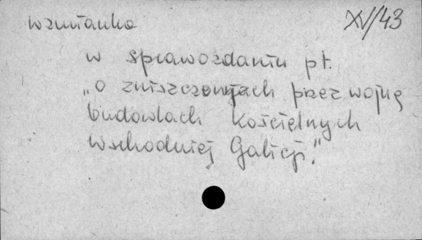 wzmianka XV/43
w sprawozdaniu pt.
„o zniszczonych przez wojnę
budowlach kościelnych
Wschodniej Galicji."